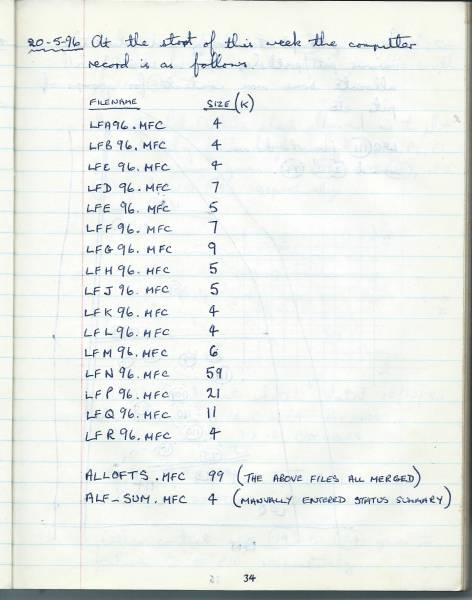 20-5-96 At the start of this week the computer
record is as follows.
FILENAME SIZE (K)
LFA96.MFC 4
LFB 96.MFC 4
LFC 96.MFC 4
LFD 96.MFC 7
LFE 96.MFC 5
LFF 96.MFC 7
LFG 96.MFC 9
LFH 96.MFC 5
LFJ 96.MFC 5
LFK 96.MFC 4
LFL 96.MFC 4
LFM 96.MFC 6
LFN 96.MFC 59
LFP 96.MFC 21
LFQ 96.MFC 11
LFR 96.MFC 4
ALLOFTS.MFC 99 (THE ABOVE FILES ALL MERGED)
ALF-SUM.MFC 4 (MANUALLY ENTERED STATUS SUMMARY)
34